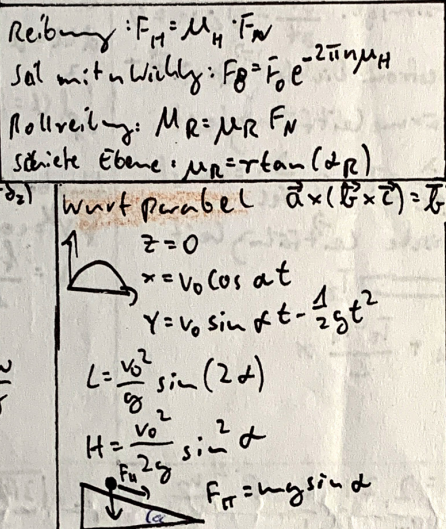 Reibung : F_H = μ_H · F_N
Seil mit n Wicklg : F_B = F_0 e^{-2πnμ_H}
Rollreibung: M_R = μ_R F_N
schiefe Ebene : μ_R = r tan (α_R)
Wurfparabel a⃗ × (b⃗ × c⃗) = b⃗
z = 0
x = v_0 cos αt
y = v_0 sin α t - 1/2 g t²
L = v_0²/g sin (2α)
H = v_0²/2g sin² α
F_π = mg sin α
α